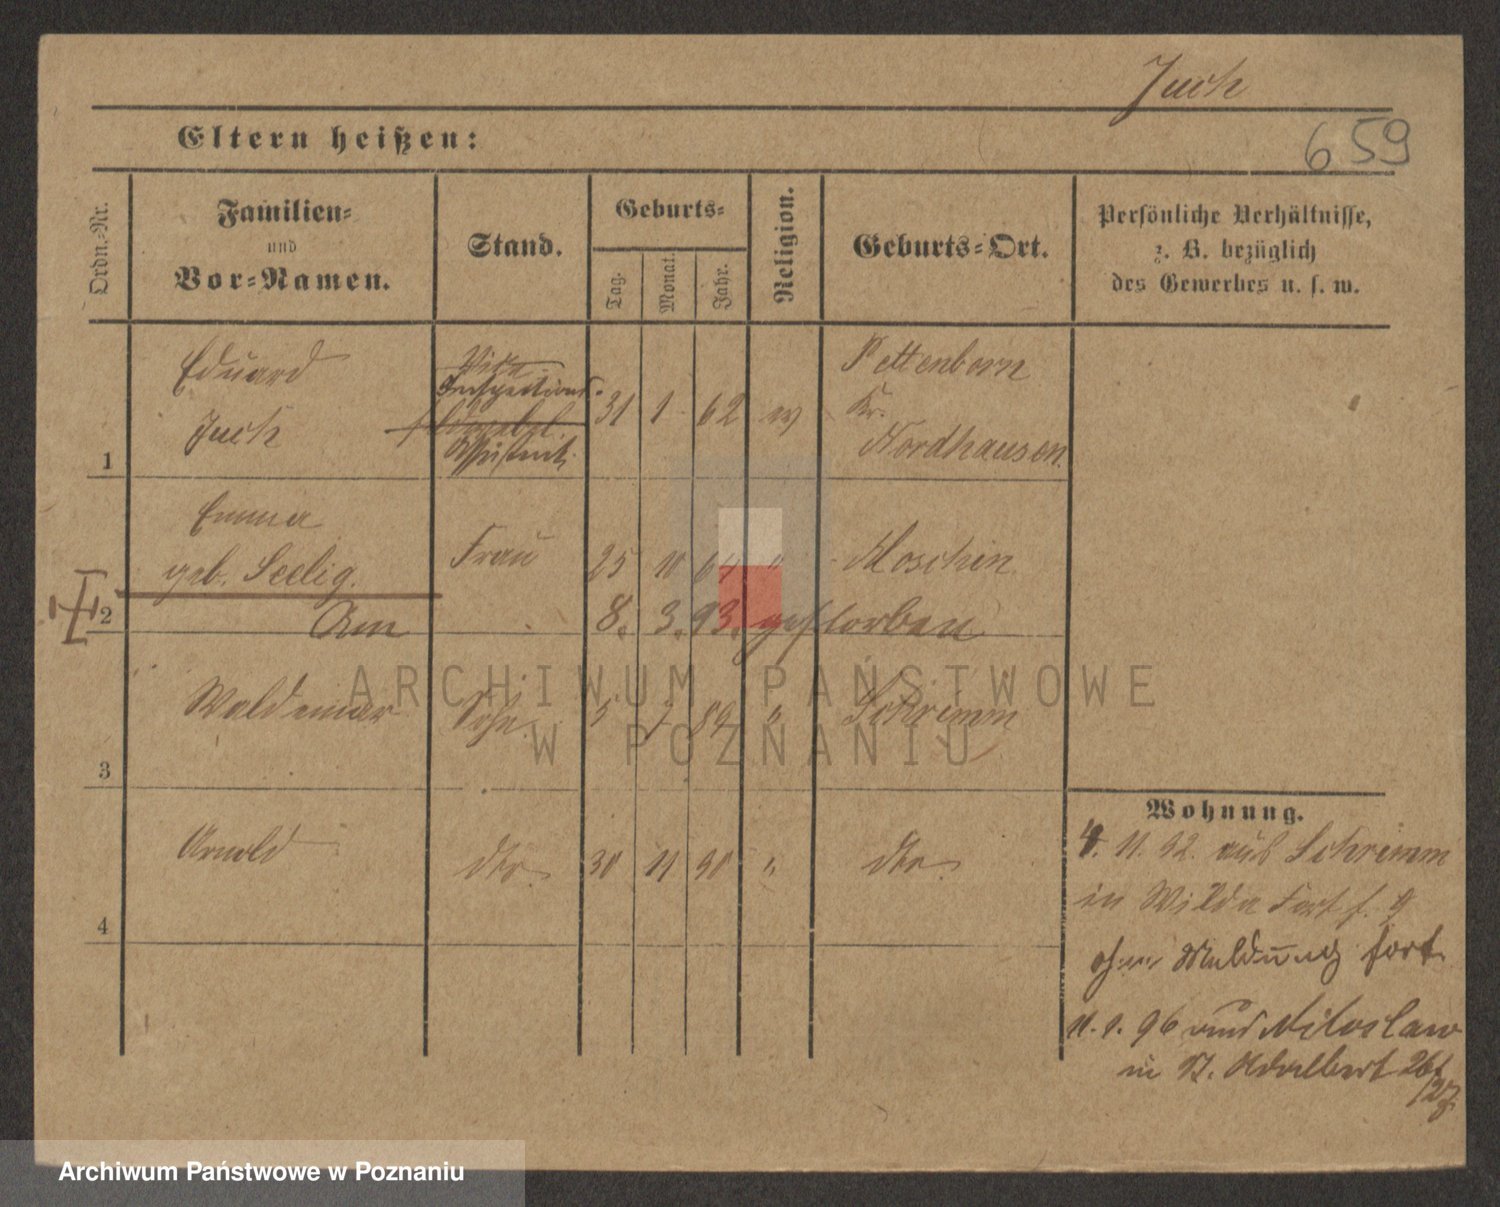 Juch
659
Eltern heißen:
Ordn.-Nr.
Familien-
und
Vor-Namen.
Stand.
Geburts-
Tag.
Monat.
Jahr.
Religion.
Geburts-Ort.
Persönliche Verhältnisse,
z. B. bezüglich
des Gewerbes u. s. w.
1
Eduard
Juch
Inspections-
Assistent
31
1
62
ev
Pettenborn
Kr.
Nordhausen.
2
Emma
geb. Seelig.
Frau
25
10
64
"
Moschin
Am 8. 3. 93. gestorben
3
Waldemar
Sohn
5
7
89
"
Schrimm
4
Arnold
dto.
30
11
90
"
dto.
Wohnung.
4. 11. 92. aus Schrimm
in Wilda Fort
ohne Meldung fort
11. 1. 96 und Miloslaw
in St. Adalbert 26/
27
ARCHIWUM PAŃSTWOWE
W POZNANIU
Archiwum Państwowe w Poznaniu